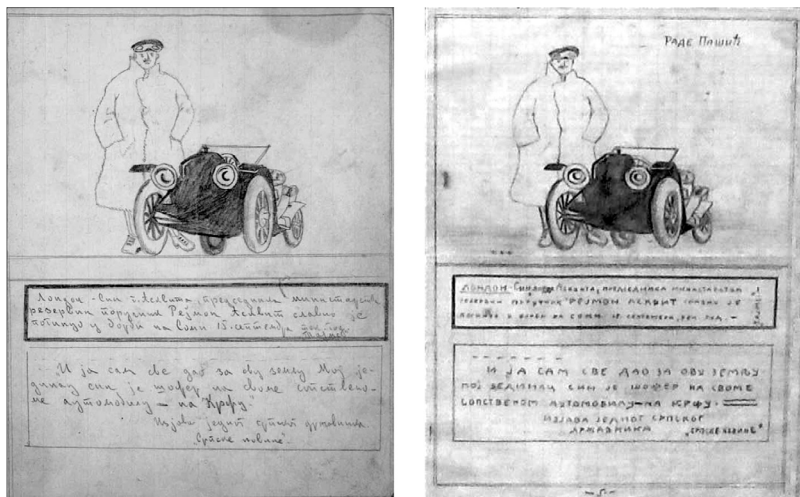 Лондон - Син г. Асквита, председника министарств
резервни поручник Рејмон Асквит славно је
погинуо у борби на Соми 15. септембра
"И ја сам све дао за ову земљу Мој је-
динац син је шофер на своме сопствено-
ме аутомобилу — на Крфу."
Изјава једног српског државника
"Српске новине".
РАДЕ ПАШИЋ
ЛОНДОН - Син АСКВИТА, ПРЕДСЕДНИКА МИНИСТАРСТВА
РЕЗЕРВНИ ПОРУЧНИК РЕЈМОН АСКВИТ СЛАВНО ЈЕ
ПОГИНУО У БОРБИ НА СОМИ 15. СЕПТЕМБРА
И ЈА САМ СВЕ ДАО ЗА ОВУ ЗЕМЉУ
МОЈ ЈЕДИНАЦ СИН ЈЕ ШОФЕР НА СВОМЕ
СОПСТВЕНОМ АУТОМОБИЛУ—НА КРФУ.
ИЗЈАВА ЈЕДНОГ СРПСКОГ
ДРЖАВНИКА "СРПСКЕ НОВИНЕ"
— 5 —